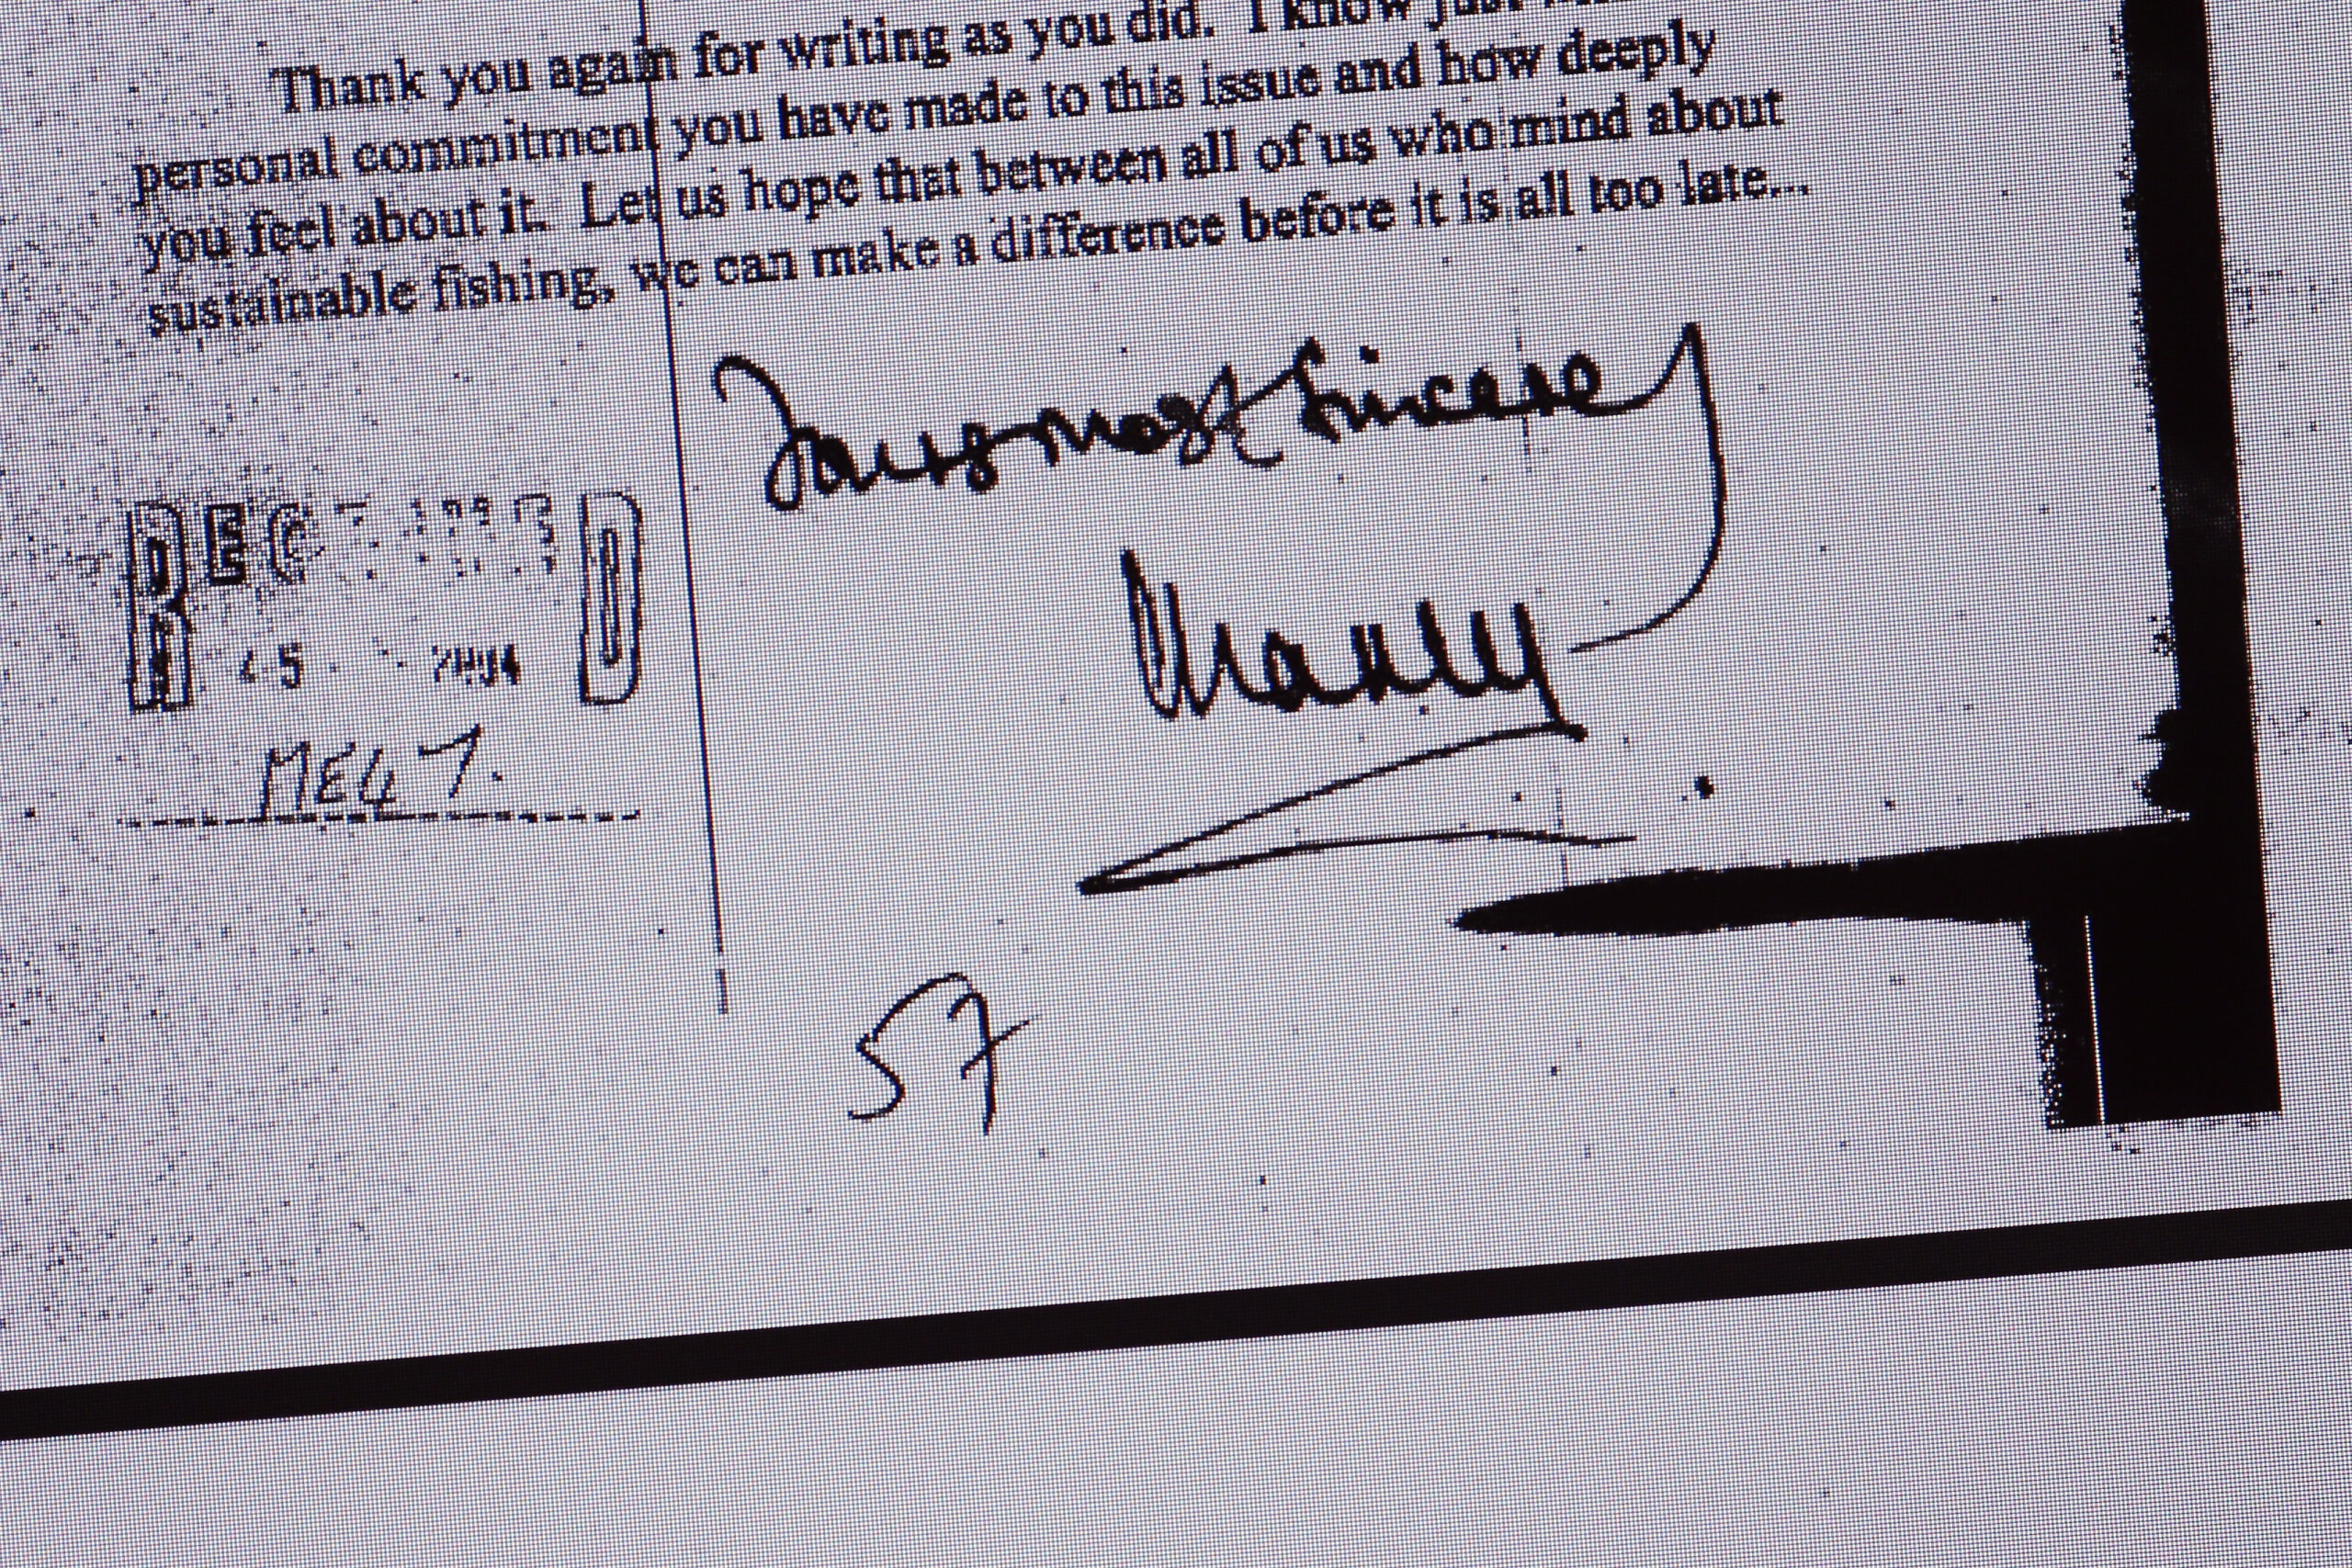 Thank you again for writing as you did. I know just
personal commitment you have made to this issue and how deeply
you feel about it. Let us hope that between all of us who mind about
sustainable fishing, we can make a difference before it is all too late...
Yours most sincerely
Charles
57